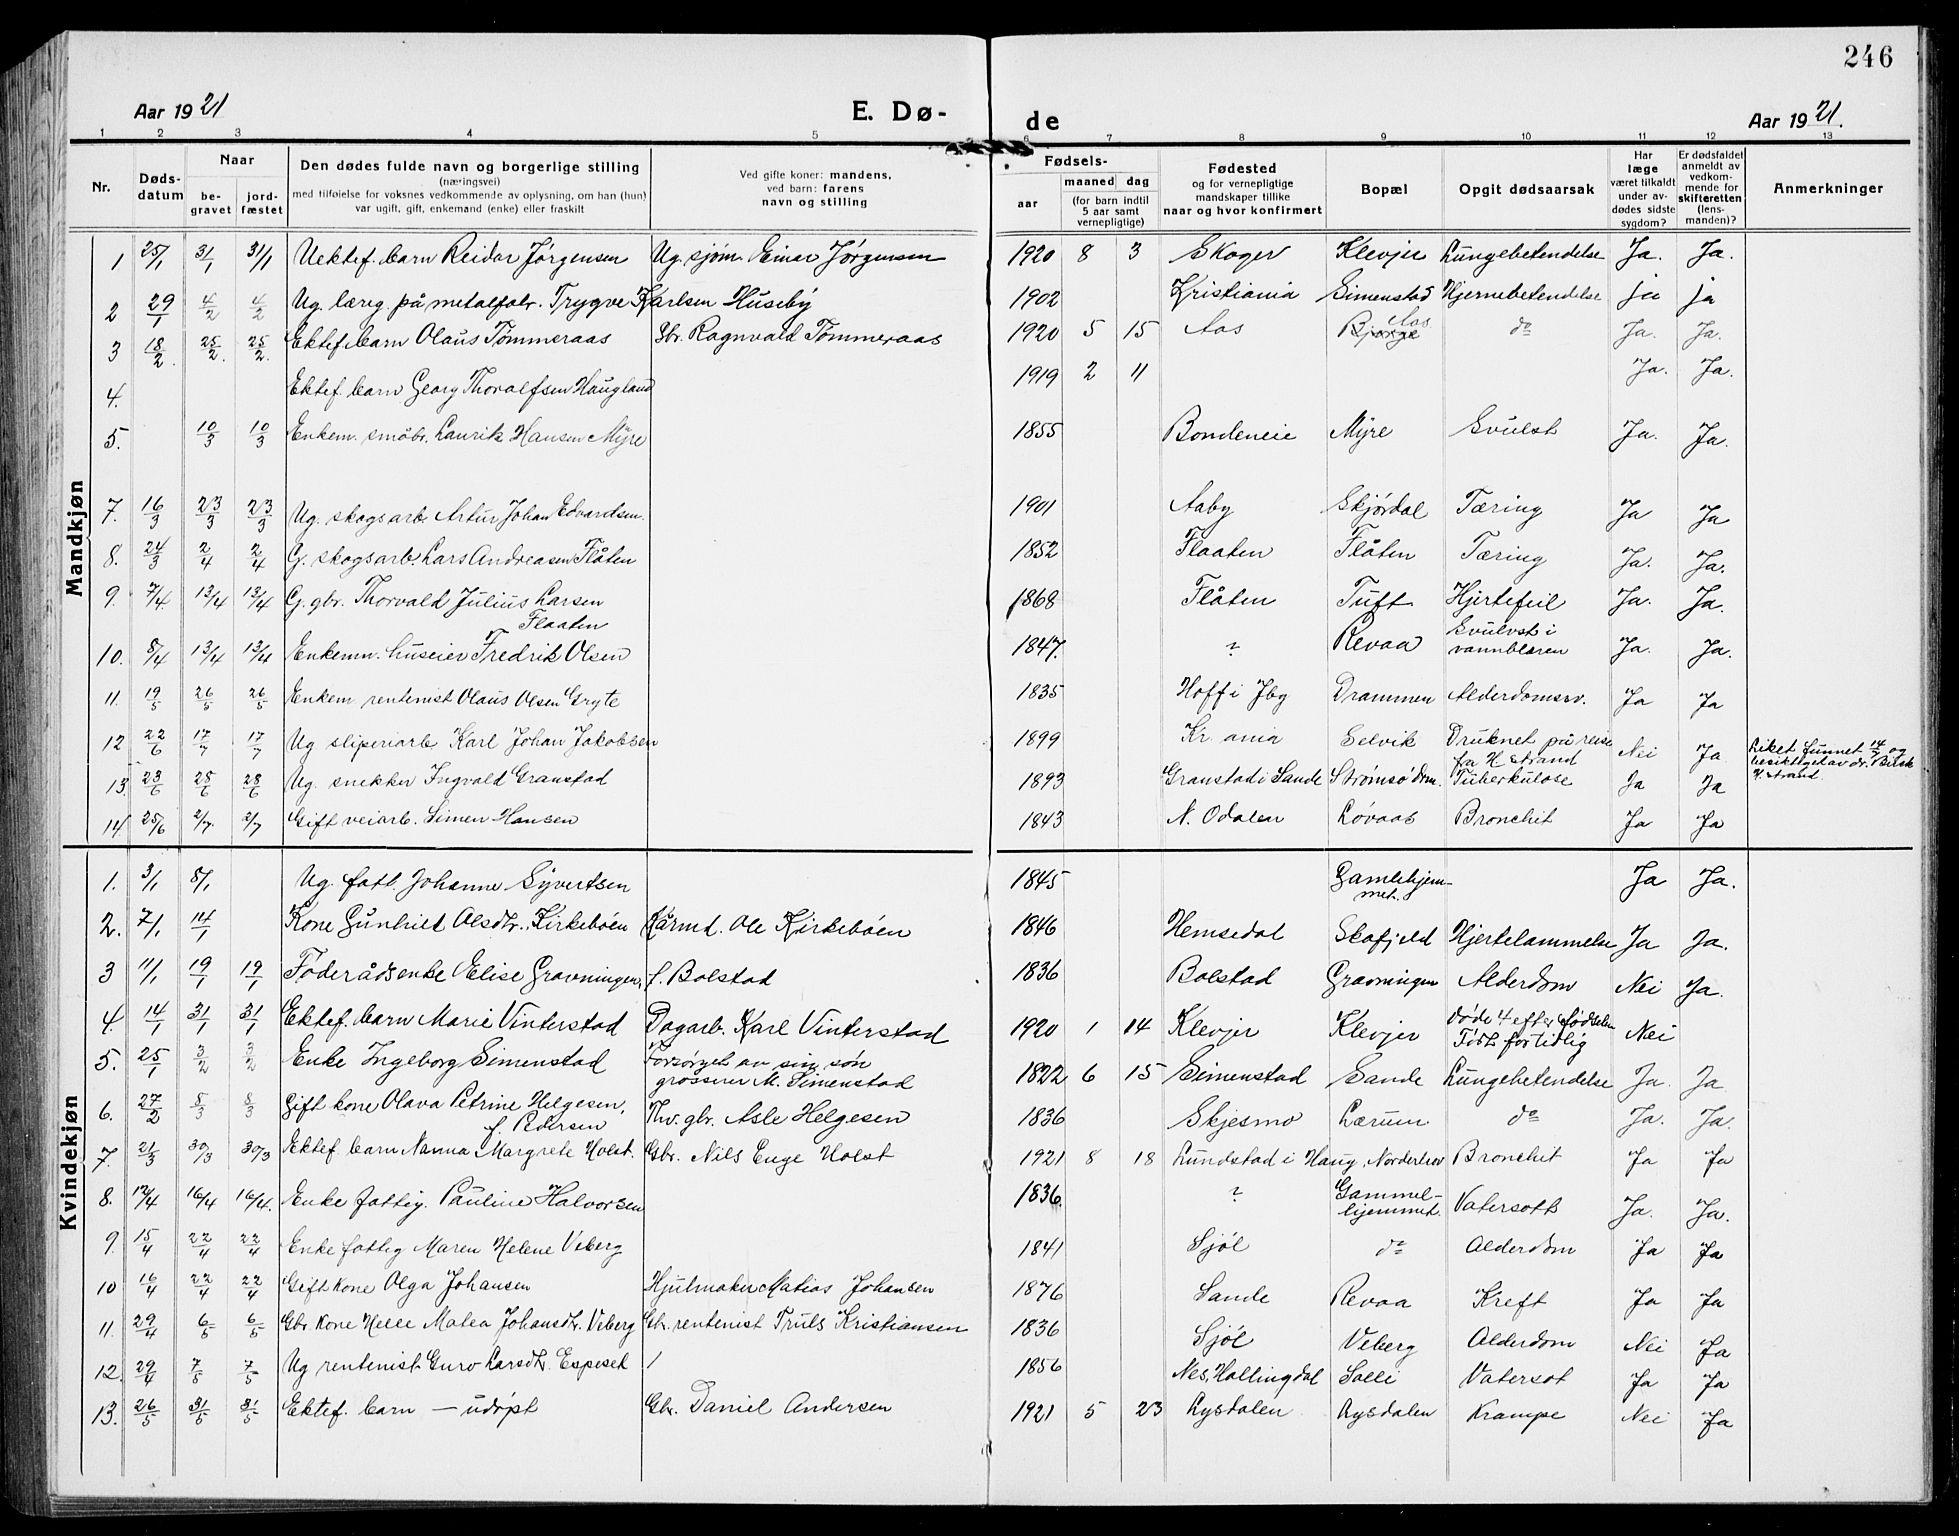 246
Aar 1921
E. Dø-
de
Aar 1921.
1 2 3 4 5 6 7 8 9 10 11 12 13
Nr.
Døds-
datum
Naar
be-
gravet
jord-
fæstet
Den dødes fulde navn og borgerlige stilling
(næringsvei)
med tilføielse for voksnes vedkommende av oplysning, om han (hun)
var ugift, gift, enkemand (enke) eller fraskilt
Ved gifte koner: mandens,
ved barn: farens
navn og stilling
Fødsels-
aar
maaned
dag
(for barn indtil
5 aar samt
vernepligtige)
Fødested
og for vernepligtige
mandskaper tillike
naar og hvor konfirmert
Bopæl
Opgit dødsaarsak
Har
læge
været tilkaldt
under av-
dødes sidste
sygdom?
Er dødsfaldet
anmeldt av
vedkom-
mende for
skifteretten
(lens-
manden)?
Anmerkninger
Mandkjøn
1 25/1 31/1 31/1 Uektef. barn Reidar Jørgensen Ug. sjøm. Einar Jørgensen 1920 8 3 Skoger Klevjer Lungebetendelse Ja. Ja.
2 29/1 4/2 4/2 Ug. læreg. på metalfabr. Trygve Karlsen Huseby 1902 Kristiania Simenstad Hjernebetendelse ja ja
3 18/2 25/2. 25/2. Ektef. barn Olaus Tømmeraas Gbr. Ragnvald Tømmeraas 1920 5 15 Aas Aas do Ja. Ja.
4. Ektef. barn Georg Thoralfsen Haugland 1919 2 11 Ja. Ja.
5. 10/3 10/3 Enkem. småbr. Laurits Hansen Myre 1855 Bondeneie Myre Svulst Ja. Ja.
7. 16/3 23/3 23/3 Ug. skogsarb. Artur Johan Edvardsen. 1901 Aaby Skjørdal Tæring Ja Ja
8. 24/3 2/4 2/4 G. skogsarb. Lars Andreasen Flåten 1852 Flaaten Flåten Tæring Ja. Ja.
9. 7/4 13/4 13/4 G. gbr. Thorvald Julius Larsen 1868 Flåten Tuft Hjertefeil Ja. Ja.
Flaaten
10. 8/4 13/4 13/4 Enkemn. huseier Fredrik Olsen 1847. ? Revaa Svulvst i Ja. Ja.
vannblæren
11. 19/5 26/5 26/5 Enkem. rentenist Olaus Olsen Gryte 1835 Hoff i Jbg Drammen Alderdomssv. Ja Ja
12 22/6 17/7 17/7 Ug sliperiarb. Karl Johan Jakobsen 1899 Kr. ania Selvik Druknet på reise Nei Ja Liket funnet 14/7 og
fra H strand besiktiget av dr.
H. strand
13. 23/6 28/6 28/6 Ug. snekker Ingvald Granstad 1893 Granstad i Sande Strømsø Drm. Tuberkulose Ja Ja
14 25/6 2/7. 2/7 Gift veiarb. Simen Hansen 1843 N. Odalen Løvaas Bronchit Ja Ja
Kvindekjøn
1. 3/1 8/1 Ug. fatt. Johanne Syvertsen 1845 Gamlehjem- Ja Ja.
met.
2. 7/1 14/1 Kone Gunhild Olsdtr. Kirkebøen Kårmd. Ole Kirkebøen 1846 Hemsedal Skafjeld Hjertelammelse Ja Ja.
3 11/1 19/1 19/1 Føderådsenke Elise Gravningen, f. Bolstad 1836 Bolstad Gravningen Alderdom Nei Ja.
4. 14/1 31/1 31/1 Ektef. barn Marie Vinterstad Dagarb. Karl Vinterstad 1920 1 14 Klevjer Klevjer Døde 4 efter fødselen Nei
Født for tidlig
5. 25/1 3/2 3/2 Enke Ingeborg Simenstad Forsørget av sin søn 1822 6 15 Simenstad Sande Lungebetendelse Ja. Ja
grosserer M. Simenstad
6. 27/2 8/3 8/3 Gift kone Olava Petrine Helgesen, Thv. gbr. Asle Helgesen 1836 Skjesmo Lærum do Ja. Ja.
f. Pedersen
7. 21/3 30/3 30/3 Ektef. barn Nanna Margrete Holst. Gbr. Nils Enge Holst 1921 8 18 Lundstad i Haug, Norderhov Bronchit Ja Ja
8. 12/4 16/4 16/4. Enke fattig. Pauline Halvorsen 1836. ? Gammel- Vatersott Ja. Ja.
hjemmet.
9. 15/4 22/4 22/4 Enke fattig Maren Helene Veberg 1841 Sjøl do Alderdom Ja Ja
10 16/4 22/4 22/4 Gift kone Olga Johansen Hjulmaker Matias Johansen 1876 Sande Revaa Kreft Ja Ja
11. 29/4 6/5 6/5 Gbr. kone Helle Malea Johansdtr. Veberg Gbr. rentenist Truls Kristiansen 1836 Sjøl Veberg Alderdom Nei Ja
12. 29/4 7/5 7/5 Ug rentenist Guro Larsdtr. Espeset / 1856 Nes, Hallingdal Solli Vatersot Ja Ja
13. 26/5 31/5 31/5 Ektef. barn — udøpt Gbr. Daniel Andersen 1921 5 23 Lysdalen Lysdalen Krampe Nei Ja